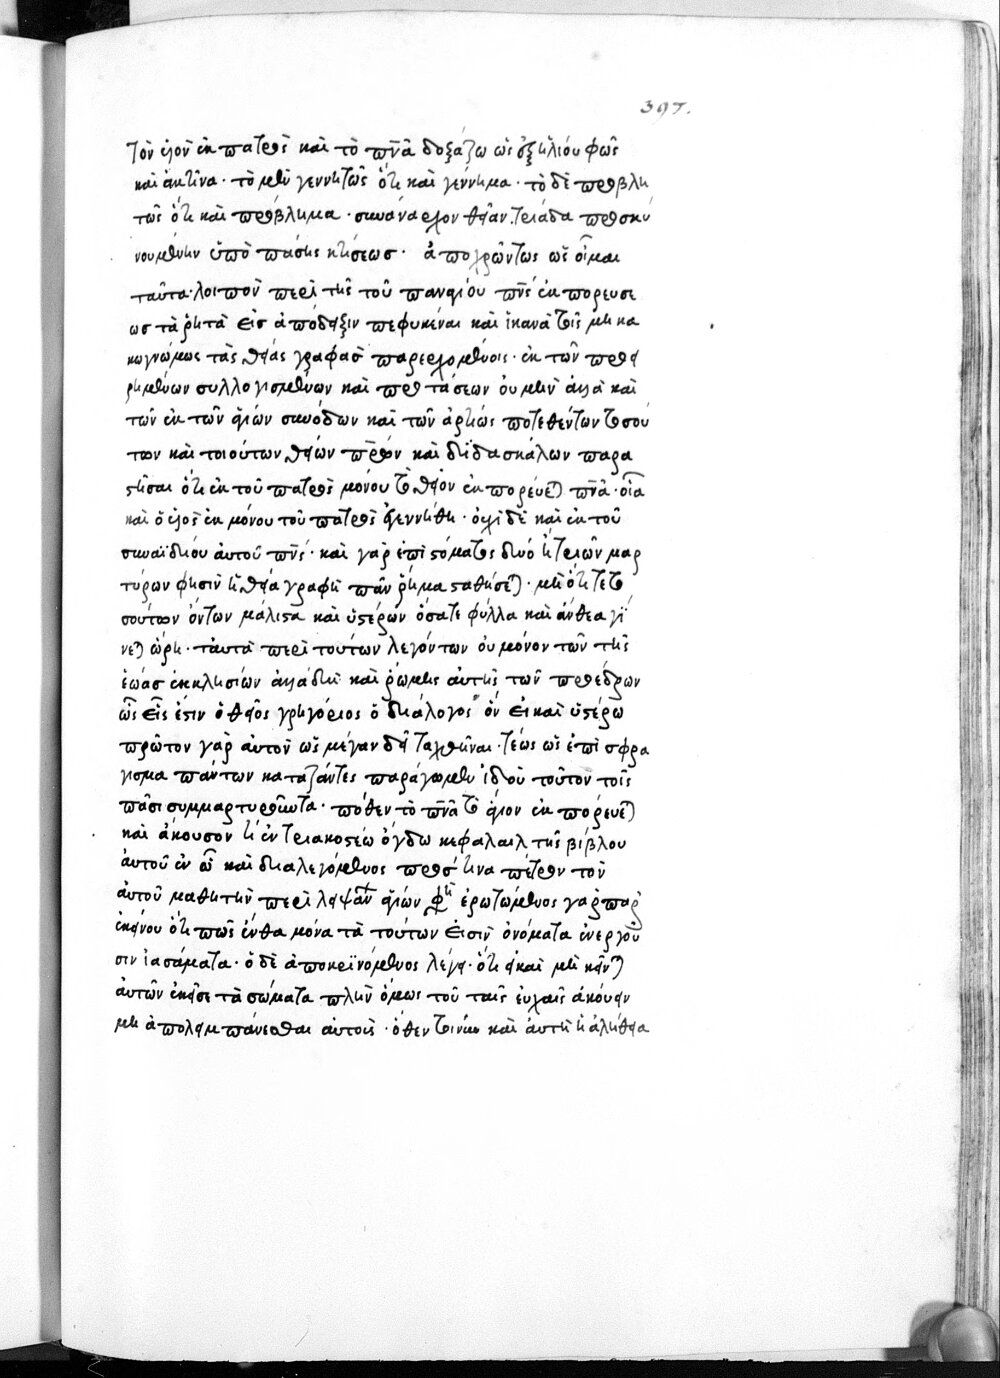 397.
τὸν υἱὸν ἐκ πατρὸς καὶ τὸ πνα δοξάζω ὡς ἐξ ἡλίου φῶς
καὶ ἀκτῖνα · τὸ μὲν γεννητῶς ὅτι καὶ γέννημα · τὸ δὲ προβλη
τῶς ὅτι καὶ πρόβλημα · συνάναρχον θείαν τριάδα προσκυ
νουμένην ὑπὸ πάσης κτίσεως · ἀποχρώντως ὡς οἶμαι
ταῦτα · λοιπὸν περὶ τῆς τοῦ παναγίου πνς ἐκπορεύσε
ως τὰ ῥητὰ εἰς ἀπόδειξιν πεφυκέναι καὶ ἱκανὰ τοῖς μὴ κα
κογνώμως τὰς θείας γραφὰς παρερχομένοις · ἐκ τῶν προει
ρημένων συλλογισμένων καὶ προτάσεων οὐ μὴν ἀλλὰ καὶ
τῶν ἐκ τῶν ἁγίων συνόδων καὶ τῶν ἀρτίως ποτεθέντων τοσού
των καὶ τοιούτων θείων πρων καὶ διδασκάλων παρα
στῆσαι ὅτι ἐκ τοῦ πατρὸς μόνου τὸ θεῖον ἐκπορεύεται πνα · οἷα
καὶ ὁ υἱὸς ἐκ μόνου τοῦ πατρὸς ἐγεννήθη · οὐχὶ δὲ καὶ ἐκ τοῦ
συναϊδίου αὐτοῦ πνς · καὶ γὰρ ἐπὶ στόματος δυό ἢ τριῶν μαρ
τύρων φησὶν ἡ θεία γραφὴ πᾶν ῥῆμα σταθήσεται · μὴ ὅτι γε το
σούτων ὄντων μάλιστα καὶ ὑστέρων ὅσα τε φύλλα καὶ ἄνθεα γί
νεται ὥρη · ταυτὰ περὶ τούτων λεγόντων οὐ μόνον τῶν τῆς
ἑώας ἐκκλησιῶν ἀλλὰ δὴ καὶ ῥώμης αὐτῆς τῶν προέδρων
ὧν εἷς ἐστιν ὁ θεῖος γρηγόριος ὁ διάλογος ὃν εἰ καὶ ὑστέρω
πρῶτον γὰρ αὐτὸν ὡς μέγαν δεῖ ταχθῆναι · τέως ὡς ἐπισφρά
γισμα πάντων κατατάξαντες παράγωμεν ἰδοὺ τοῦτον τοῖς
πᾶσι συμμαρτυροῦντα · πόθεν τὸ πνα τὸ ἅγιον ἐκπορεύεται
καὶ ἄκουσον τί ἐν τριακοστῷ ὀγδόω κεφαλαίῳ τῆς βίβλου
αὐτοῦ ἐν ᾧ καὶ διαλεγόμενος πρός τινα πέτρον τὸν
αὐτοῦ μαθητὴν περὶ λειψάνων ἁγίων φησὶ ἐρωτώμενος γὰρ παρ
ἐκείνου ὅτι πῶς ἔνθα μόνα τὰ τούτων εἰσὶν ὀνόματα ἐνεργοῦ
σιν ἰάματα · ὁ δὲ ἀποκρινόμενος λέγει · ὅτι εἰ καὶ μὴ κεῖνται
αὐτῶν ἐκεῖσε τὰ σώματα πλὴν ὅμως τοῦ ταῖς εὐχαῖς ἀκούειν
μὴ ἀπολιμπάνεσθαι αὐτοὺς · ὅθεν καὶ αὐτὴ ἡ ἀλήθεια